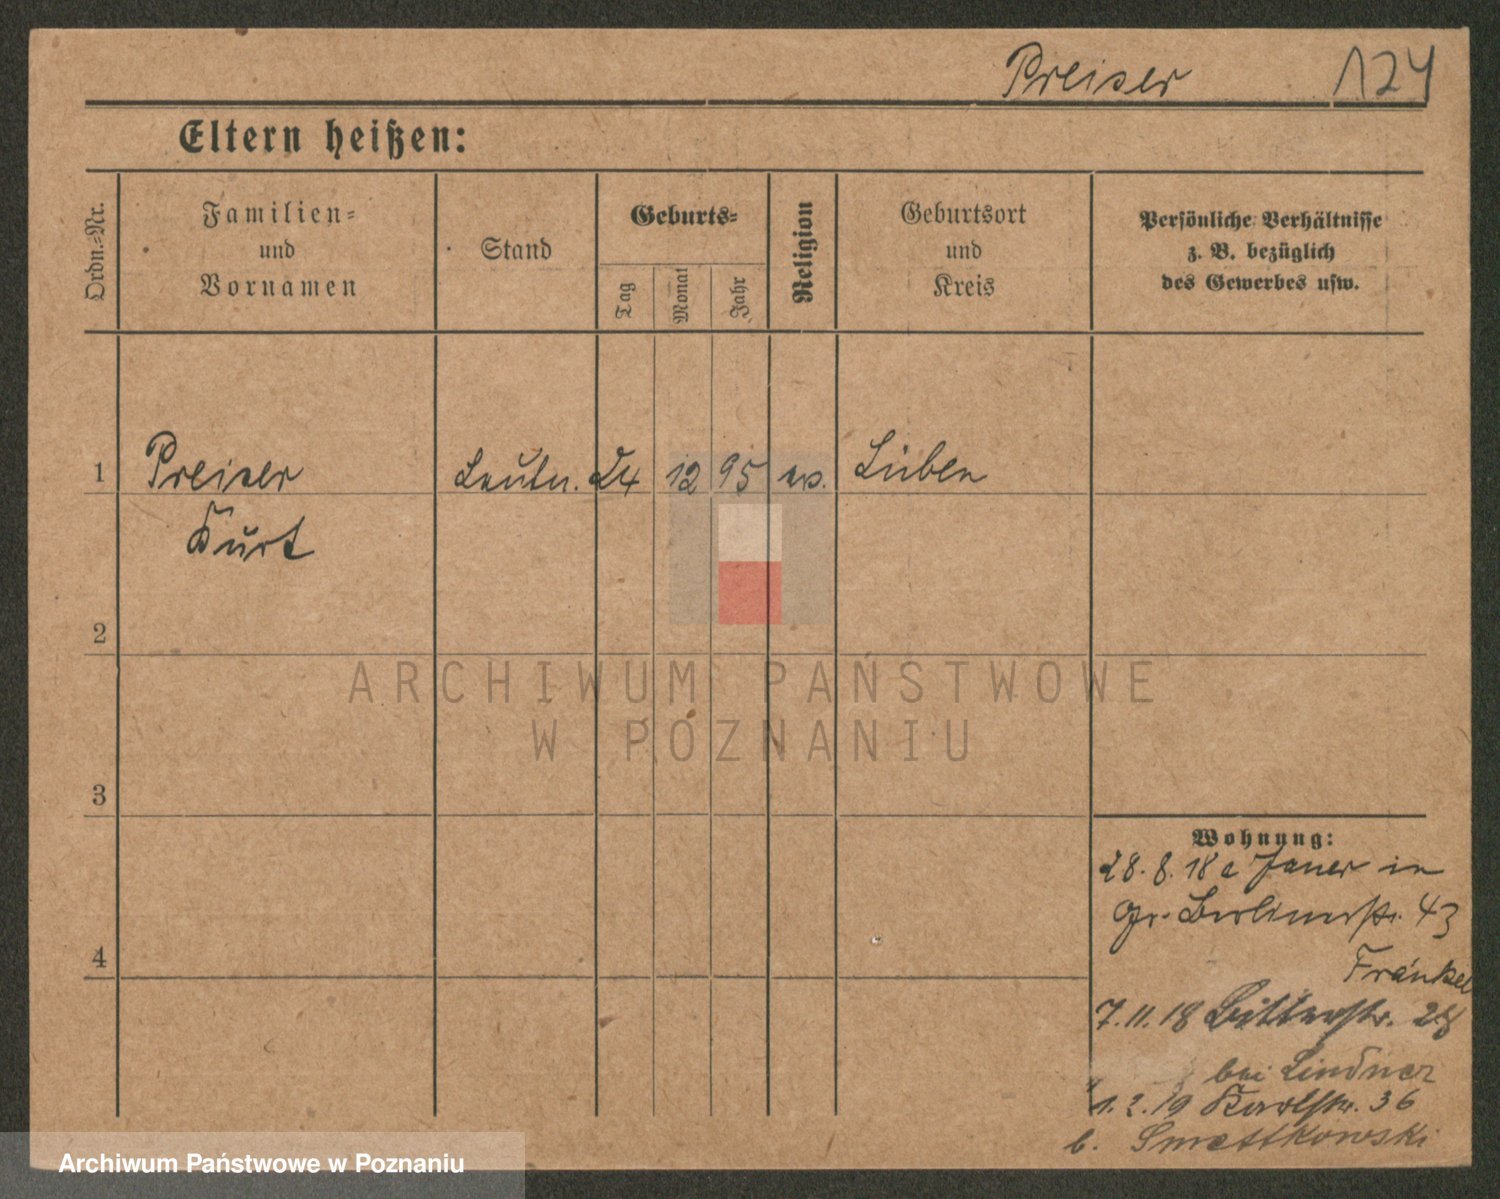 Preiser 124
Eltern heißen:
Ordn.=Nr.
Familien=
und
Vornamen
Stand
Geburts=
Tag
Monat
Jahr
Religion
Geburtsort
und
Kreis
Persönliche Verhältnisse
z. B. bezüglich
des Gewerbes usw.
1 Preiser Leutn. 24 12 95 ev. Lüben
Kurt
2
3
4
Wohnung:
28. 8. 18 a Jauer in
Gr. Berlinerstr. 43
Fränkel
7. 11. 18 28
bei Lindner
1. 2. 19 Karlstr. 36
b. Smettkowski
ARCHIWUM PAŃSTWOWE
W POZNANIU
Archiwum Państwowe w Poznaniu